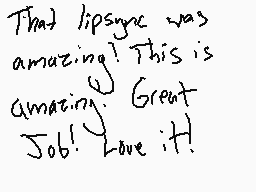 That lipsync was
amazing! This is
amazing. Great
Job! Love it!